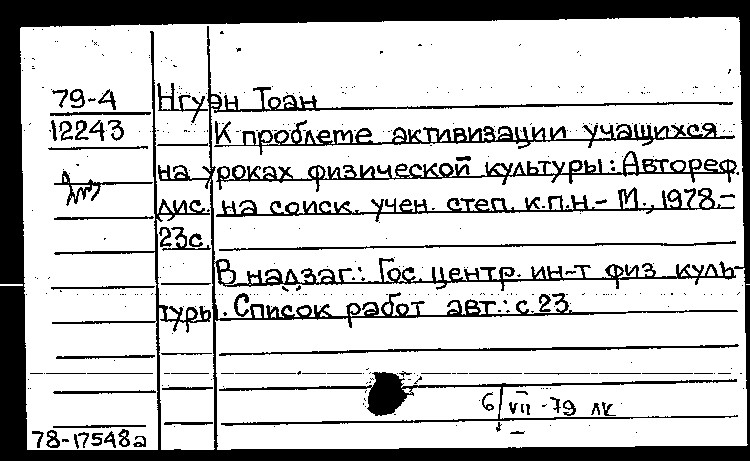 79-4 Нгуэн Тоан
12243 К проблеме активизации учащихся
на уроках физической культуры: Автореф.
дис. на соиск. учен. степ. к.п.н.- М., 1978.-
23с.
В надзаг.: Гос. центр. ин-т физ. куль-
туры. Список работ авт.: с. 23.
6/VII-79 лк
78-17548а